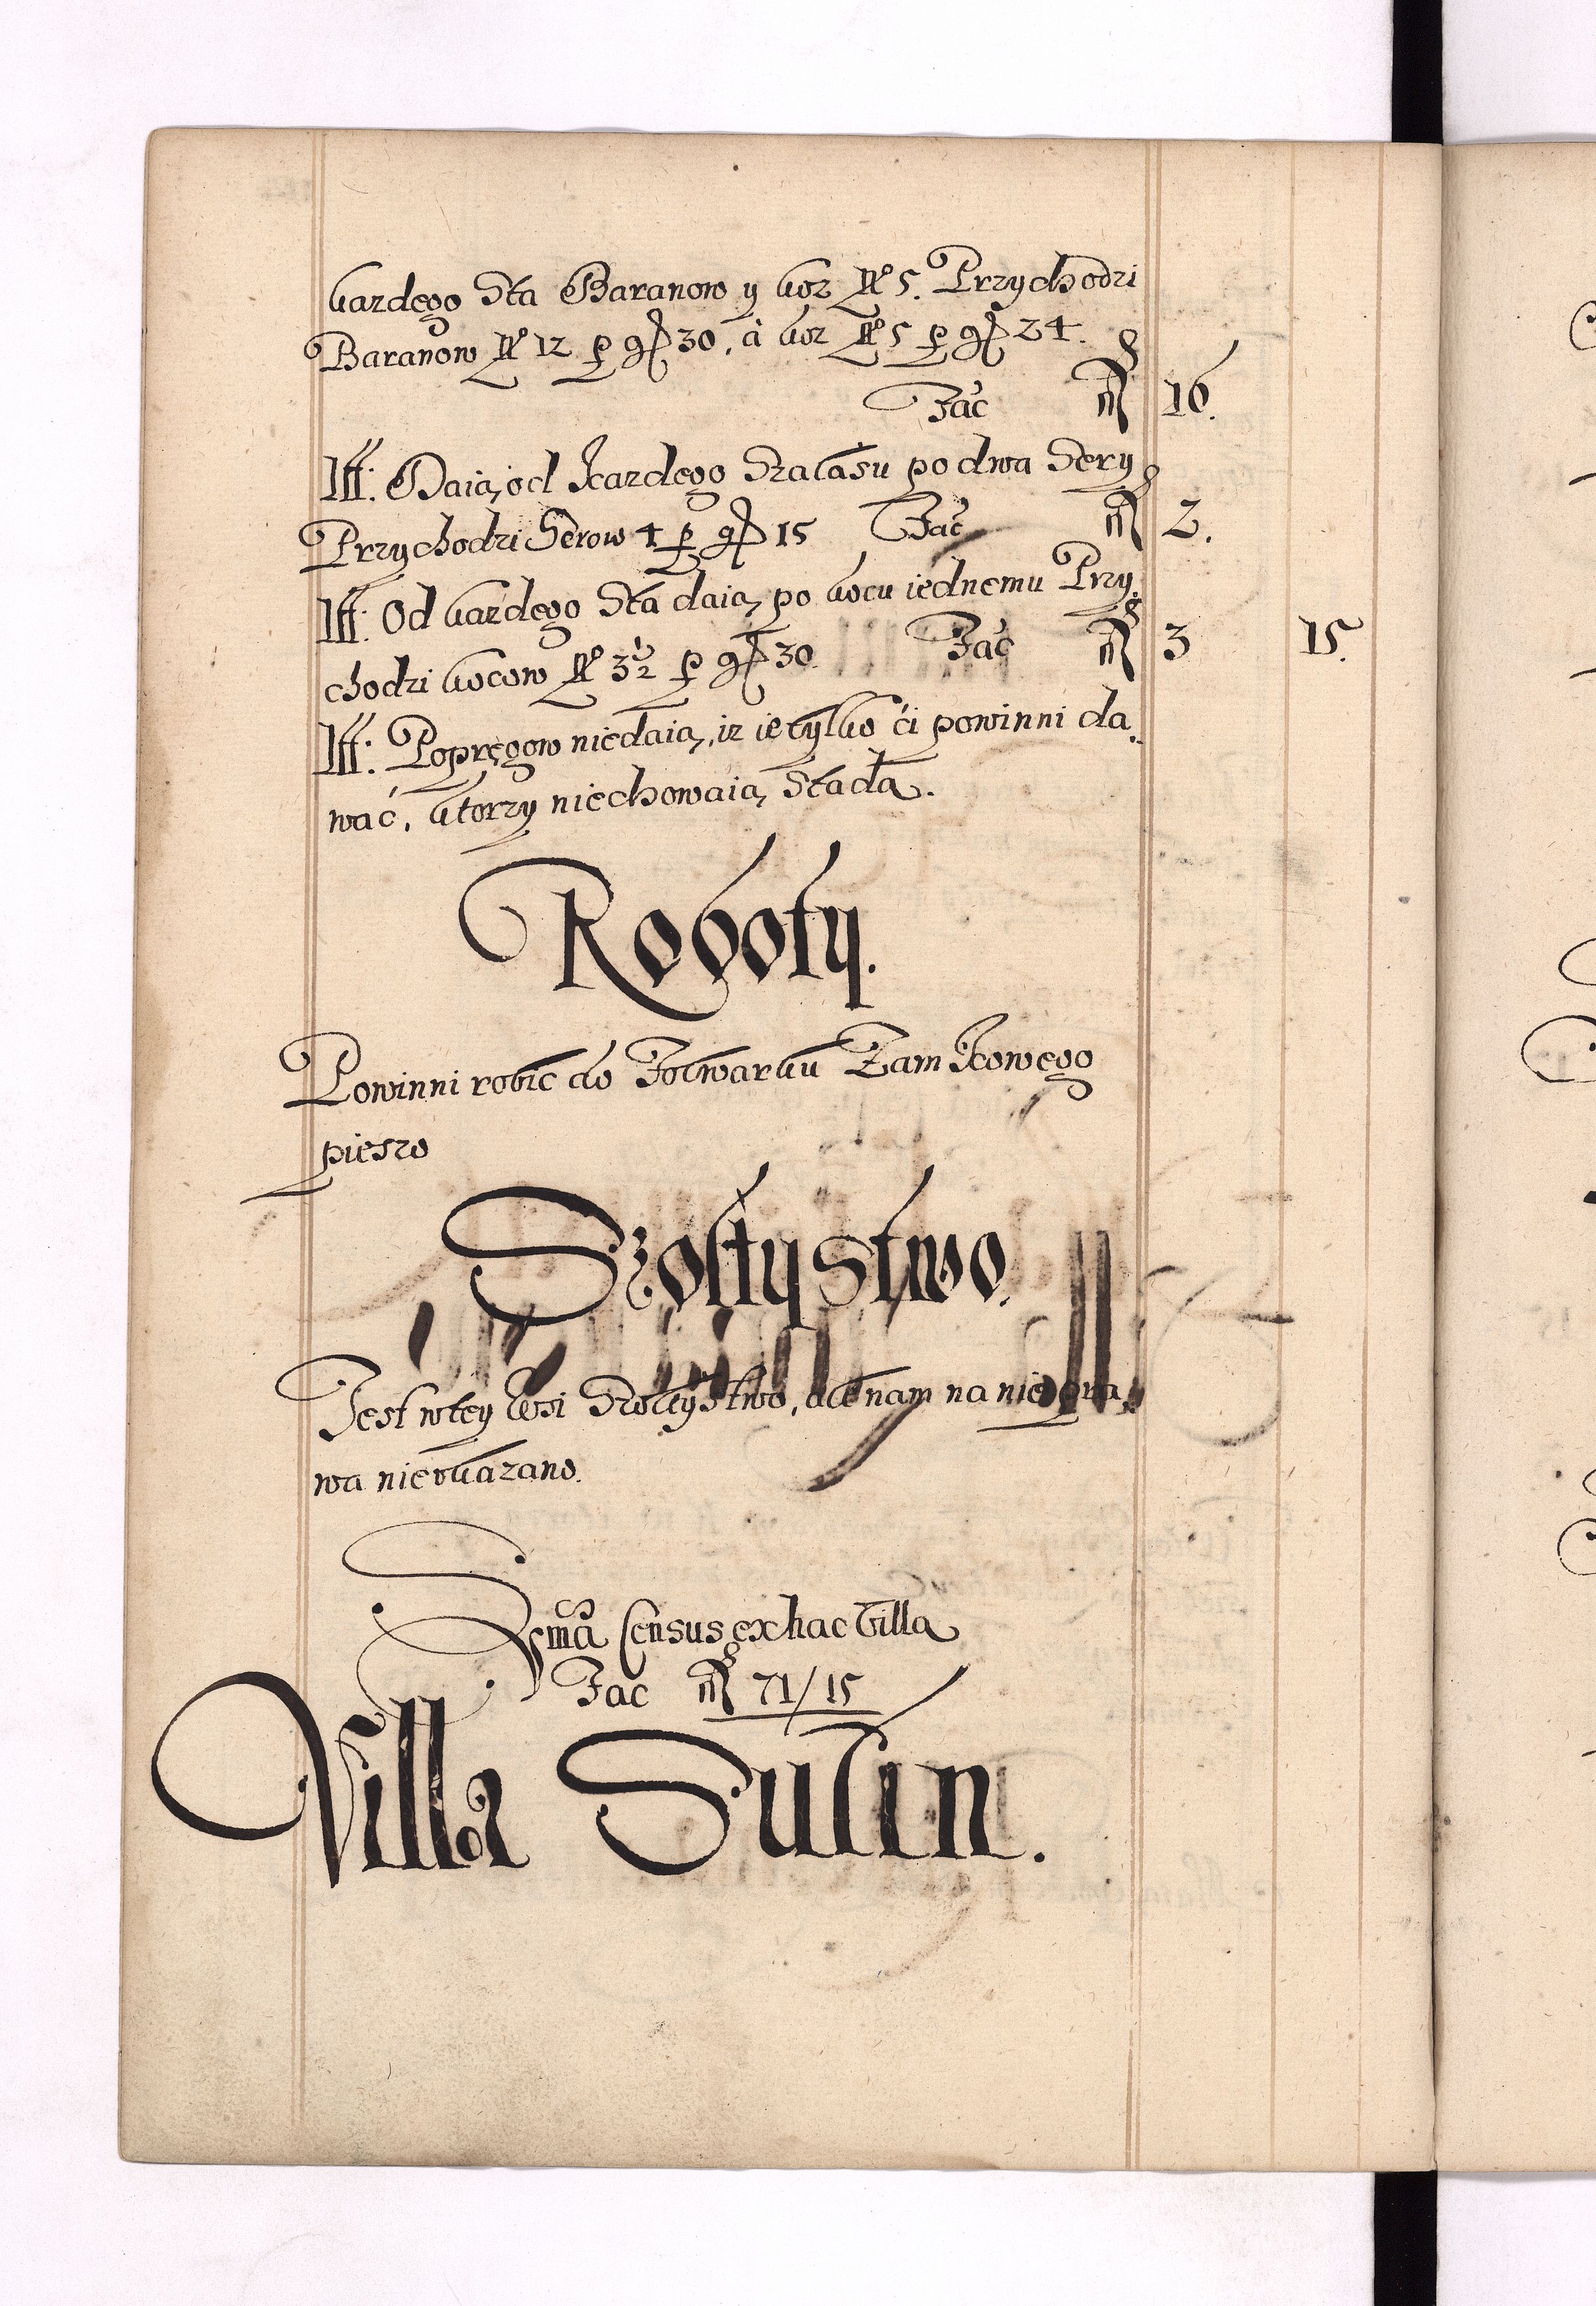 kazdego Sta Baranow y koz No 5. Przychodzi
Baranow No 12 p gr 30, á koz No 5 p gr 24.
Fac fl 16.
Itt: Daią od kazdego Szałasu po dwa Sery
Przychodzi Serow 4 p gr 15 Fac fl 2.
Itt: Od kazdego Sta daią po kocu iednemu Przy
chodzi kocow No 3½ p gr 30 Fac fl 3 15.
Itt: Popręgow niedaią, iz ie tylko ći powinni da
wać, ktorzy niechowaią Stada.
Roboty.
Powinni robić do Folwarku Zamkowego
pieszo
Szołtystwo.
Jest wtey wsi Szołtystwo, ale nam na nie pra
wa nieokazano.
Sma Census ex hac Villa
Fac fl 71/15
Villa Sulin.